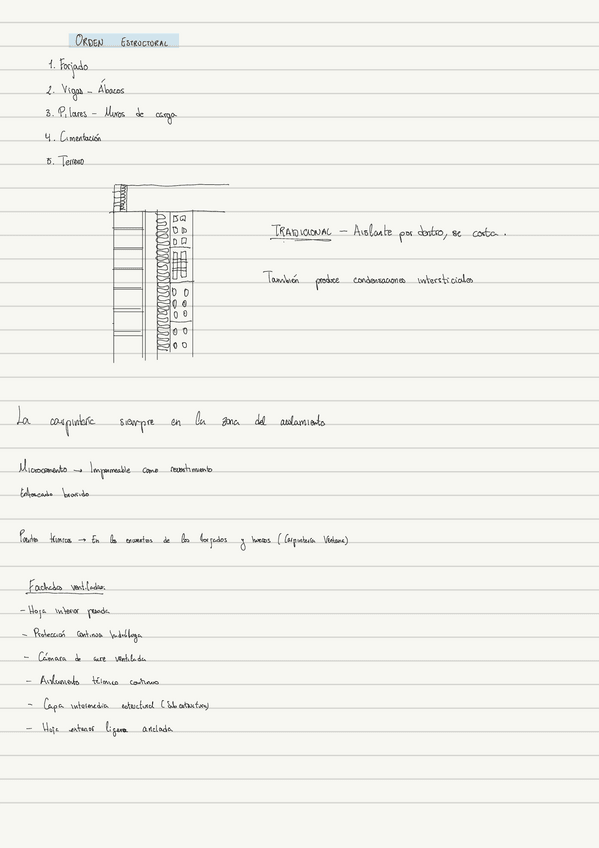 ORDEN ESTRUCTORAL
1. Forjado
2. Vigas - Ábacos
3. Pilares - Muros de carga
4. Cimentación
5. Terreno
TRADICIONAL - Aislante por dentro, se corta.
También produce condensaciones intersticiales
La carpintería siempre en la zona del aislamiento
Microcemento → Impermeable como revestimiento
Enfoscado bruñido
Puentes térmicos → En los encuentros de los forjados y huecos (Carpintería Ventana)
Fachadas ventiladas
- Hoja interior pesada
- Protección continua hidrófuga
- Cámara de aire ventilada
- Aislamiento térmico continuo
- Capa intermedia estructural (Subestructura)
- Hoja exterior ligera anclada